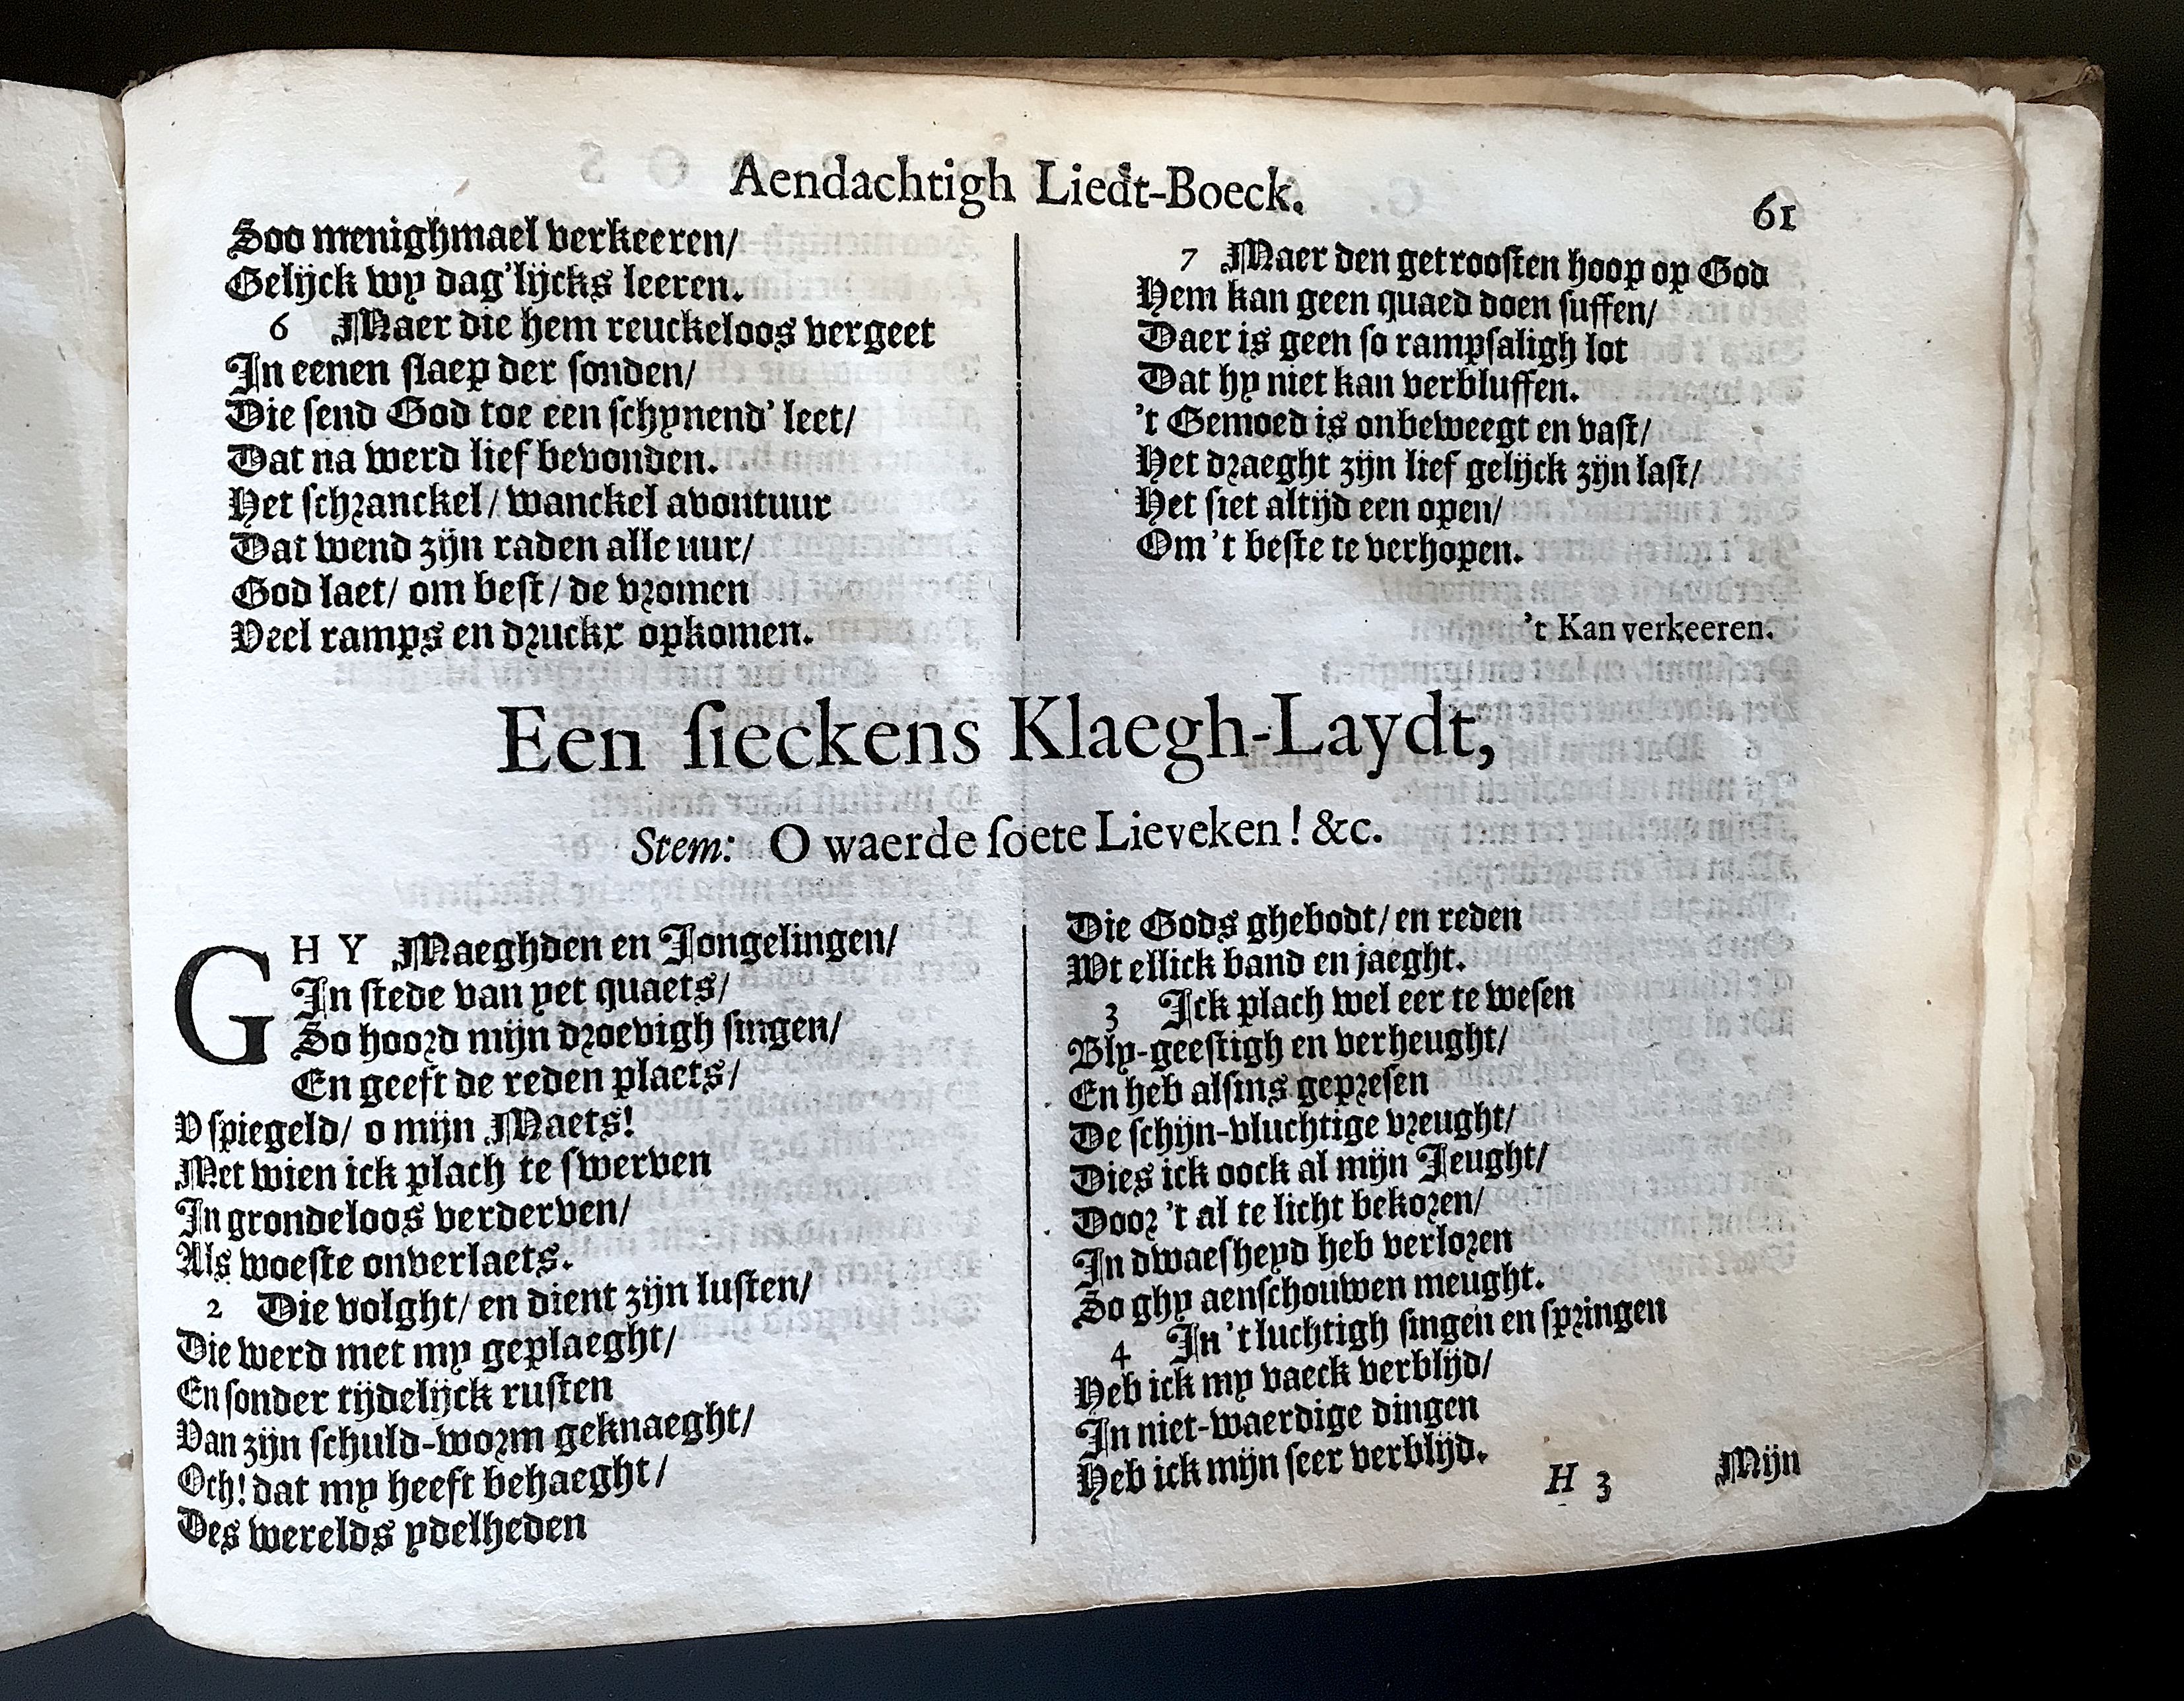 Aendachtigh Liedt-Boeck.
61
Soo menighmael verkeeren/
Gelijck wy dag'lijcks leeren.
6 Maer die hem reuckeloos vergeet
In eenen slaep der sonden/
Die send God toe een schynend' leet/
Dat na werd lief bevonden.
Het schranckel/ wanckel avontuur
Dat wend zijn raden alle uur/
God laet/ om best/ de vromen
Veel ramps en druckx opkomen.
7 Maer den getroosten hoop op God
Hem kan geen quaed doen suffen/
Daer is geen so rampsaligh lot
Dat hy niet kan verbluffen.
't Gemoed is onbeweegt en vast/
Het draeght zijn lief gelijck zijn last/
Het siet altijd een open/
Om 't beste te verhopen.
't Kan verkeeren.
Een sieckens Klaegh-Laydt,
Stem: O waerde soete Lieveken! &c.
GHY Maeghden en Jongelingen/
In stede van yet quaets/
So hoord mijn droevigh singen/
En geeft de reden plaets/
V spiegeld/ o mijn Maets!
Met wien ick plach te swerven
In grondeloos verderven/
Als woeste onverlaets.
2 Die volght/ en dient zijn lusten/
Die werd met my geplaeght/
En sonder tijdelijck rusten
Van zijn schuld-worm geknaeght/
Och! dat my heeft behaeght/
Des werelds ydelheden
Die Gods ghebodt/ en reden
Wt ellick band en jaeght.
3 Ick plach wel eer te wesen
Bly-geestigh en verheught/
En heb alsins gepresen
De schijn-vluchtige vreught/
Dies ick oock al mijn Jeught/
Door 't al te licht bekoren/
In dwaesheyd heb verloren
So ghy aenschouwen meught.
4 In 't luchtigh singen en springen
Heb ick my vaeck verblijd/
In niet-waerdige dingen
Heb ick mijn seer verblijd.
H 3
Mijn